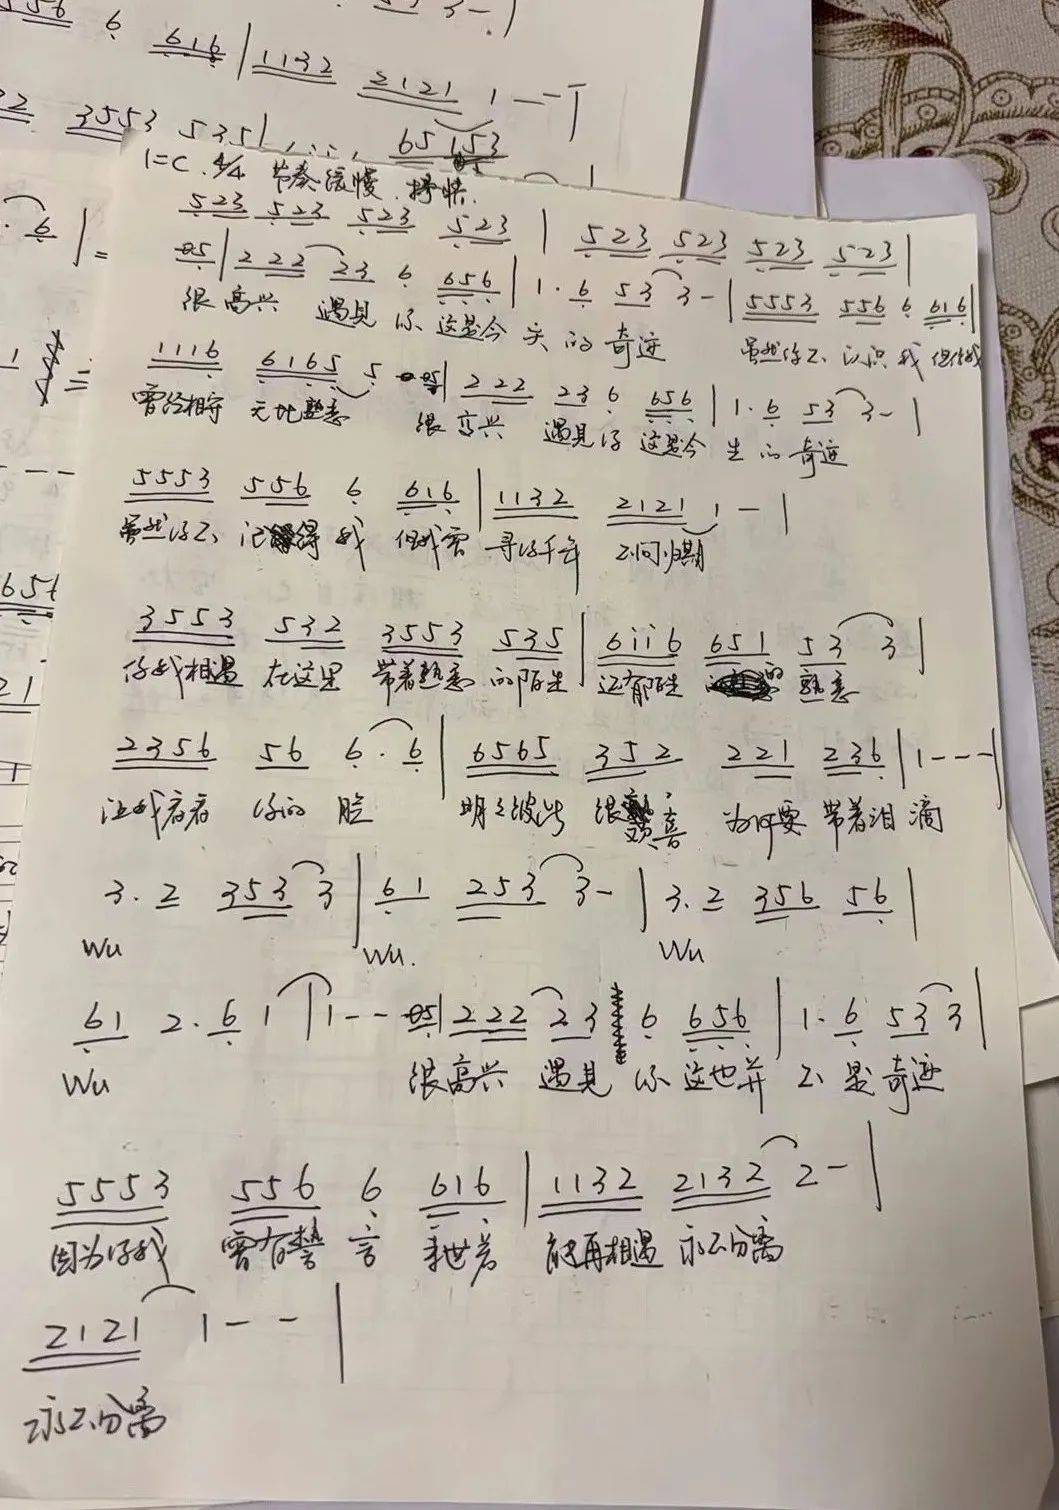 556 6 616 | 1132 2121 1 — — |
3553 535 | 65 153
1=C. 4/4 节奏缓慢. 抒情.
523 523 523 523 | 523 523 523 523 |
05 | 2 22 23 6 656 | 1· 6 53 3 - | 5553 556 6 616 |
很高兴 遇见 你 这是今 天 的 奇迹 虽然你不 认识 我 但你我
1116 6165 5 05 | 2 22 23 6 656 | 1· 6 53 3 - |
曾经相守 无比熟悉 很 高兴 遇见 你 这是今 生 的 奇迹
5553 556 6 616 | 1132 2121 1 - |
虽然你不 记得 我 但我需 寻你千年 不问归期
3553 532 3553 535 | 6i̇i̇6 651 53 3 |
你我相遇 在这里 带着熟悉 的陌生 还有陌生 的 熟悉
2356 56 6· 6 | 6565 352 221 236 | 1 - - - |
让我看看 你的 脸 明明彼此 很 喜 为何要 带着泪 滴
3· 2 353 3 | 61 253 3 - | 3· 2 356 56 |
Wu Wu. Wu
61 2· 6 1 | 1 - - 05 | 2 22 23 6 656 | 1· 6 53 3 |
Wu 很高兴 遇见 你 这也并 不 是 奇迹
5553 556 6 616 | 1132 2132 2 - |
因为你我 曾有誓 言 来世若 能再相遇 永不分离
2121 1 - - |
永不分离